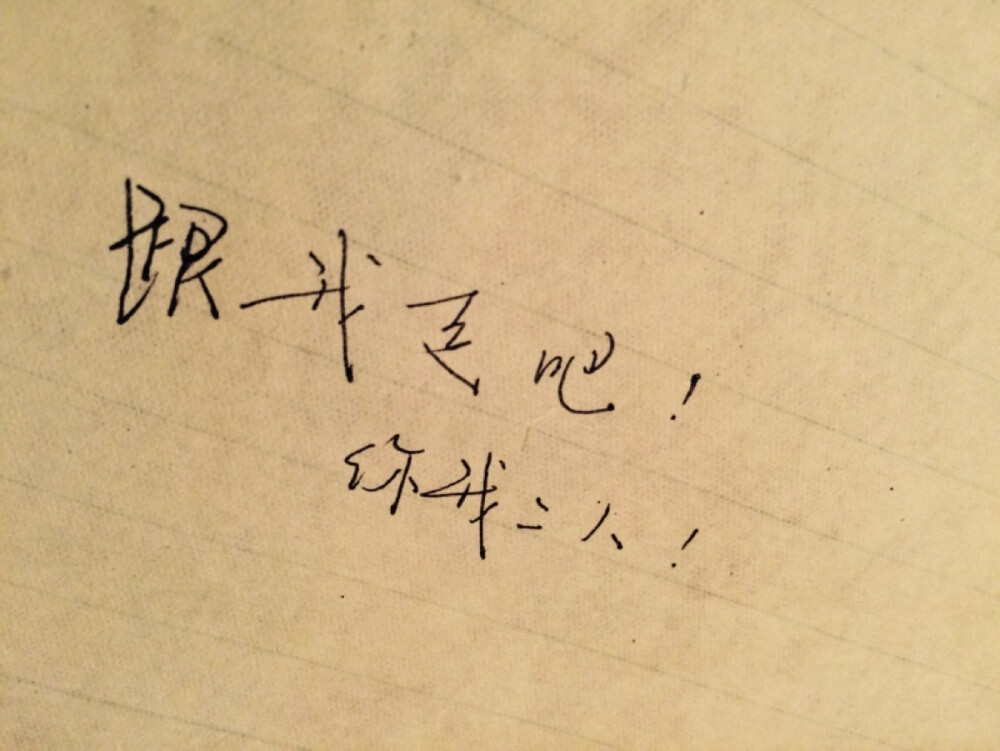 跟我走吧！
你我二人！